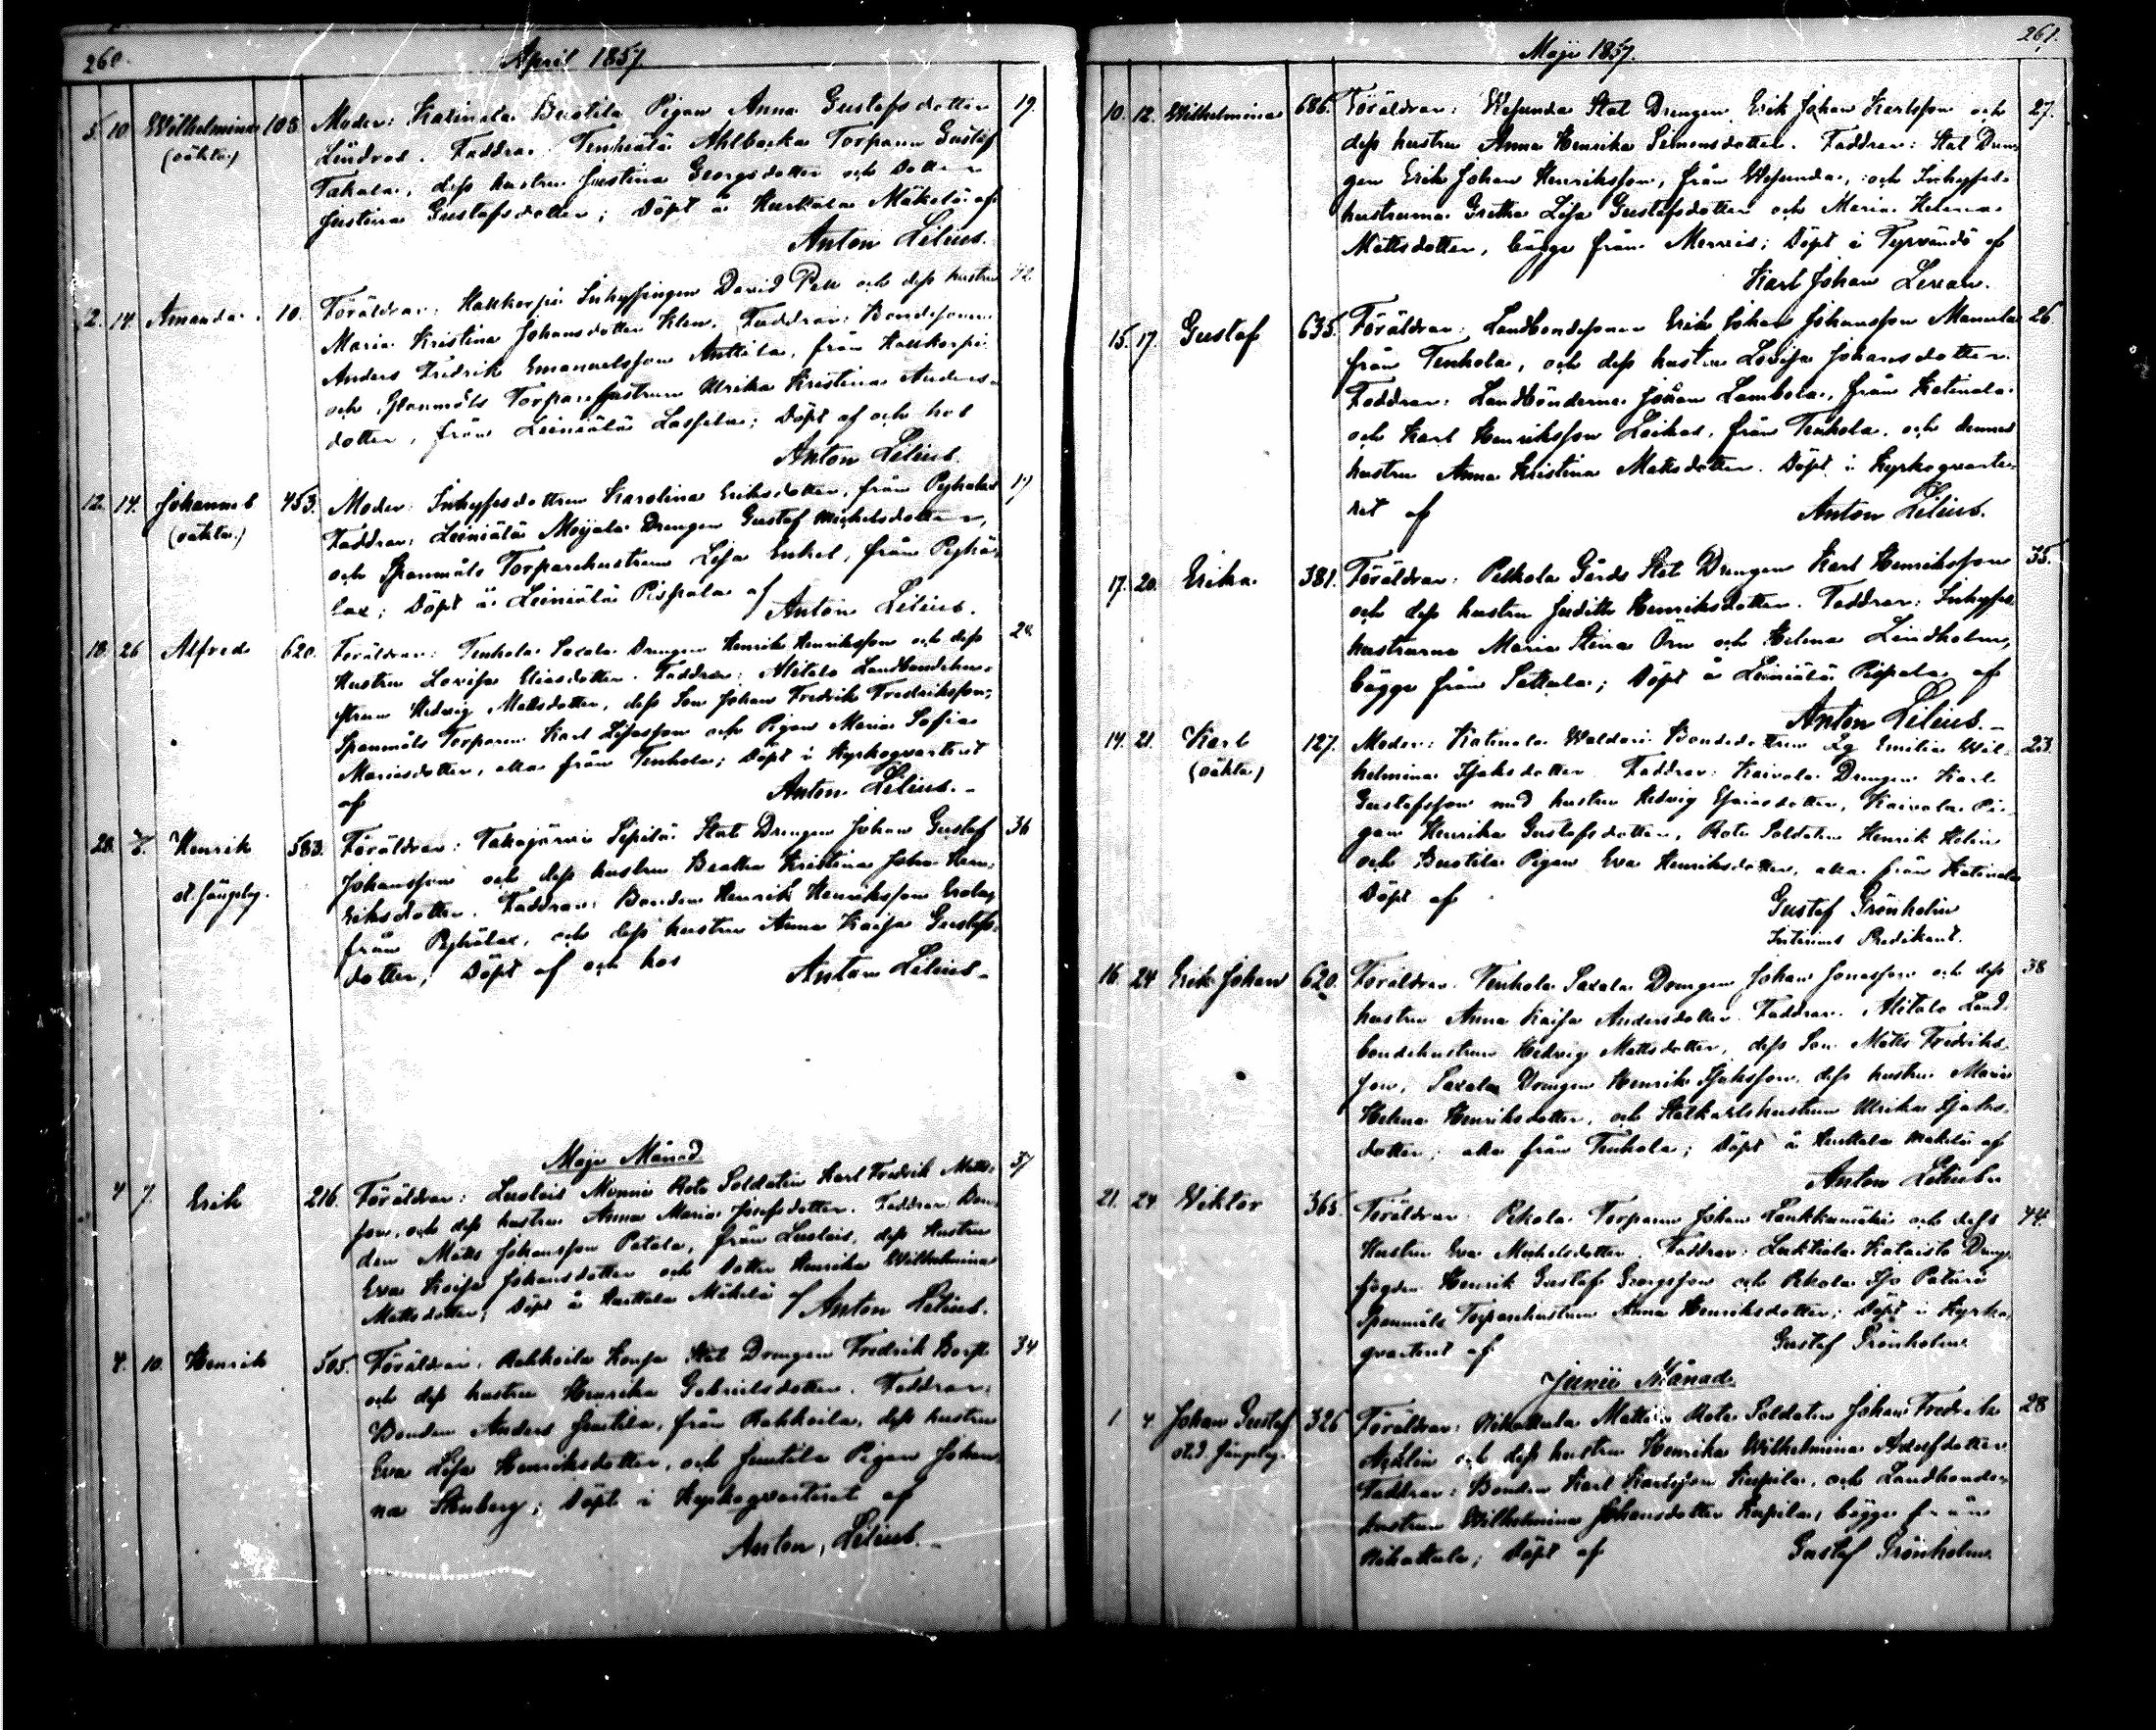 260.
April 1857
5. 10 Wilhelmina 108. Moder: Katinala Buotila Pigan Anna Gustafsdotter 19.
(oäkta) Lindroos. Faddrar: Tenhiälä Ahlbacka Torparn Gustaf
Takala, dess hustru Justina Georgsdotter och dotter
Justina Gustafsdotter; Döpt å Hurttala Mäkelä af
Anton Lilius.
2. 14. Amanda 10. Föräldrar: Hattkorpi Inhysingen David Pell och dess hustru 42
Maria Kristina Johansdotter Klen. Faddrar: Bondesonen
Anders Fredrik Emanuelsson Anttila, från Hattkorpi
och Torparehustrun Ulrika Kristina Anders-
dotter, från Leiniälä Lassila; Döpt af och hos
Anton Lilius.
12. 14. Johannes 453. Moder: Inhysesdottren Karolina Eriksdotter, från 19
(oäkta) Faddrar: Leiniälä Moijala Drengen Gustaf Michelsdotter,
och Spanmåls Torparehustrun Lisa Enkel, från Pyhä-
lax; Döpt å Leiniälä Pispala af
Anton Lilius.
18. 26 Alfred 620. Föräldrar: Tenhola Saxala Drengen Henrik Henriksson och dess 28
Hustru Lovisa Eliasdotter. Faddrar: Alitalo Landbondehu-
strun Hedvig Mattsdotter, dess Son Johan Fredrik Fredriksson,
Spanmåls Torparen Karl och Pigan Maria Sofia
Mariasdotter, alla från Tenhola; Döpt i Kyrkoqvarteret
af Anton Lilius.
28. Henrik 583. Föräldrar: Takajärvi Sipilä Stat Drengen Johan Gustaf 36
Johansson och dess hustru Beatha Kristina
Eriksdotter. Faddrar: Bonden Henrik Henriksson
från Pyhälax, och dess hustru Anna Kaisa Gustafs-
dotter; Döpt af och hos Anton Lilius
Maji Månad
4 7. Erik 216. Föräldrar: Luolais Monni Rote Soldaten Karl Fredrik Matts- 37
son, och dess hustru Anna Maria Josefsdotter. Faddrar: Bon-
den Matts Johansson Patala, från Luolais, dess Hustru
Eva Kaisa Johansdotter och Dotter Henrika Wilhelmina
Mattsdotter; Döpt å Hurttala Mäkelä af Anton Lilius.
4. 10. Henrik 505. Föräldrar: Rahkoila Stat Drengen Fredrik 34
och dess hustru Henrika Gabrielsdotter. Faddrar:
Bonden Anders Juutila, från Rahkoila, dess hustru
Eva Lisa Henriksdotter, och Juutila Pigan Johan-
na Stenberg; Döpt i Kyrkoqvarteret af
Anton Lilius.
261.
Maji 1857.
10. 12. Wilhelmina 686. Föräldrar: Wesunda Stat Drengen Erik Johan Karlsson och 27.
dess hustru Anna Henrika Simonsdotter. Faddrar: Stat Dren-
gen Erik Johan Henriksson, från Wesunda, och Inhyses-
hustrurna Gretha Lisa Gustafsdotter och Maria Helena
Mattsdotter, begge från Mervis; Döpt i Tyrvändö af
Karl Johan
15. 17. Gustaf 635. Föräldrar: Landbondesonen Erik Johan Johansson Mannila 26
från Tenhola, och dess hustru Lovisa Johansdotter.
Faddrar: Landbönderne Johan Lambola, från Katinala
och Karl Henriksson Loikas, från Tenhola, och dennes
hustru Anna Kristina Mattsdotter. Döpt i Kyrkoqvarte-
ret af Anton Lilius.
17. 20. Erika 381. Föräldrar: Pelkola Gårds Stat Drengen Karl Henriksson 35.
och dess hustru Judith Henriksdotter. Faddrar: Inhyses-
hustrurna Maria Stina Örn och Helena Lindholm,
begge från Sattula; Döpt å Leiniälä Pispala af
Anton Lilius.
14. 21. Karl 127. Moder: Katinala Waldari Bondedottren Emilia Wil- 23.
(oäkta) helmina Isaksdotter Faddrar: Kaivola Drengen Karl
Gustafsson med hustru Hedvig Esaiasdotter, Kaivola Pi-
gan Henrika Gustafsdotter, Rote Soldaten Henrik Helin
och Buotila Pigan Eva Henriksdotter, alla från Katinala
Döpt af Gustaf Grönholm
Interims Predikant.
16. 24 Erik Johan 620. Föräldrar: Tenhola Saxala Drengen Johan Jonasson och dess 38
hustru Anna Kaisa Andersdotter. Faddrar: Alitalo Land-
bondehustrun Hedvig Mattsdotter, dess Son Matts Fredriks-
son, Saxala Drengen Henrik Isaksson, dess hustru Maria
Helena Henriksdotter, och Statkarlshustrun Ulrika Isaks-
dotter, alla från Tenhola; Döpt å Hurttala Mäkelä af
Anton Lilius
21. 24 Viktor 365. Föräldrar: Pekola Torparen Johan Lonkkamäki och dess 44.
Hustru Eva Michelsdotter. Faddrar: Luktiala Kataisto Dreng-
fogden Henrik Gustaf Georgsson och Pekola
Spanmåls Torparehustrun Anna Henriksdotter; Döpt i Kyrko-
qvarteret af Gustaf Grönholm.
Junii Månad
1. 4. Johan Gustaf 326 Föräldrar: Nihattula Mattila Rote Soldaten Johan Fredrik 28
och dess hustru Henrika Wilhelmina Adolfsdotter
Faddrar: Bonden Karl Karlsson Kupila, och Landbonde-
hustrun Wilhelmina Johansdotter Kupila, begge från
Nihattula; Döpt af Gustaf Grönholm